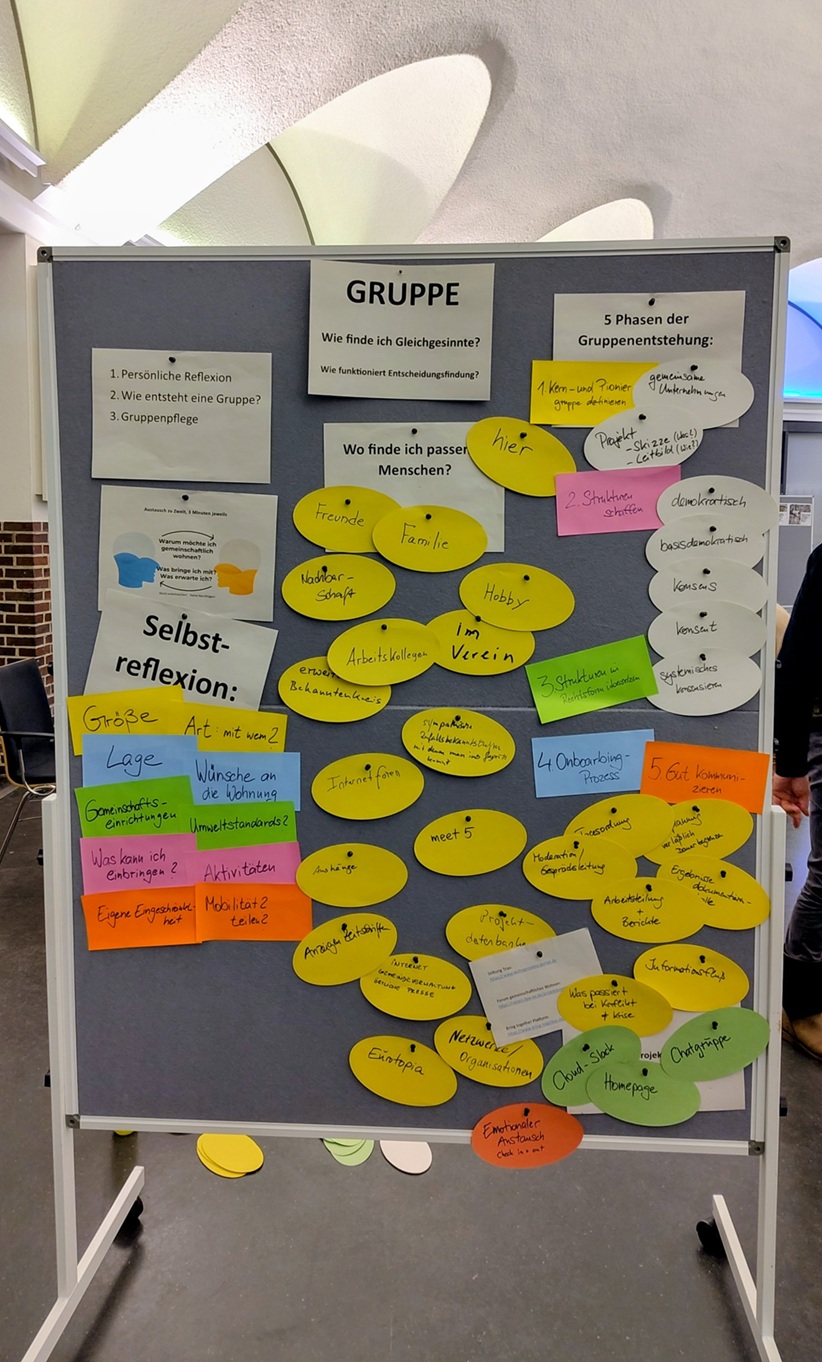 GRUPPE
Wie finde ich Gleichgesinnte?
Wie funktioniert Entscheidungsfindung?
1. Persönliche Reflexion
2. Wie entsteht eine Gruppe?
3. Gruppenpflege
Austausch zu Zweit, 3 Minuten jeweils
Warum möchte ich
gemeinschaftlich
wohnen?
Was bringe ich mit?
Was erwarte ich?
Selbst-
reflexion:
Größe
Art: mit wem?
Lage
Wünsche an
die Wohnung
Gemeinschafts-
einrichtungen
Umweltstandards?
Was kann ich
einbringen?
Aktivitäten
Mobilität?
teilen?
Wo finde ich
Menschen?
hier
Freunde
Familie
Nachbar-
schaft
Hobby
Arbeitskollegen
Im
Verein
Bekanntenkreis
Internetforen
meet 5
Aushänge
Projekt-
datenbanken
INTERNET
GEMEINDEVERWALTUNG
PRESSE
Netzwerke/
Organisationen
Eurotopia
5 Phasen der
Gruppenentstehung:
1. Kern- und Pionier
gruppe definieren
gemeinsame
Unternehmungen
Projekt
- Skizze (Was?)
- Leitbild (Wie?)
2. Strukturen
schaffen
demokratisch
basisdemokratisch
Konsens
Konsent
systemisches
konsensieren
3. Strukturen in
Rechtsform
4. Onboarding-
Prozess
5. Gut Kommuni-
zieren
Tagesordnung
Moderation/
Gesprächsleitung
Ergebnisse
Arbeitsteilung
+
Berichte
Informationsfluß
Was passiert
bei Konflikt
+ Krise
Cloud-Slack
Chatgruppe
Homepage
Emotionaler
Austausch
Check in + out